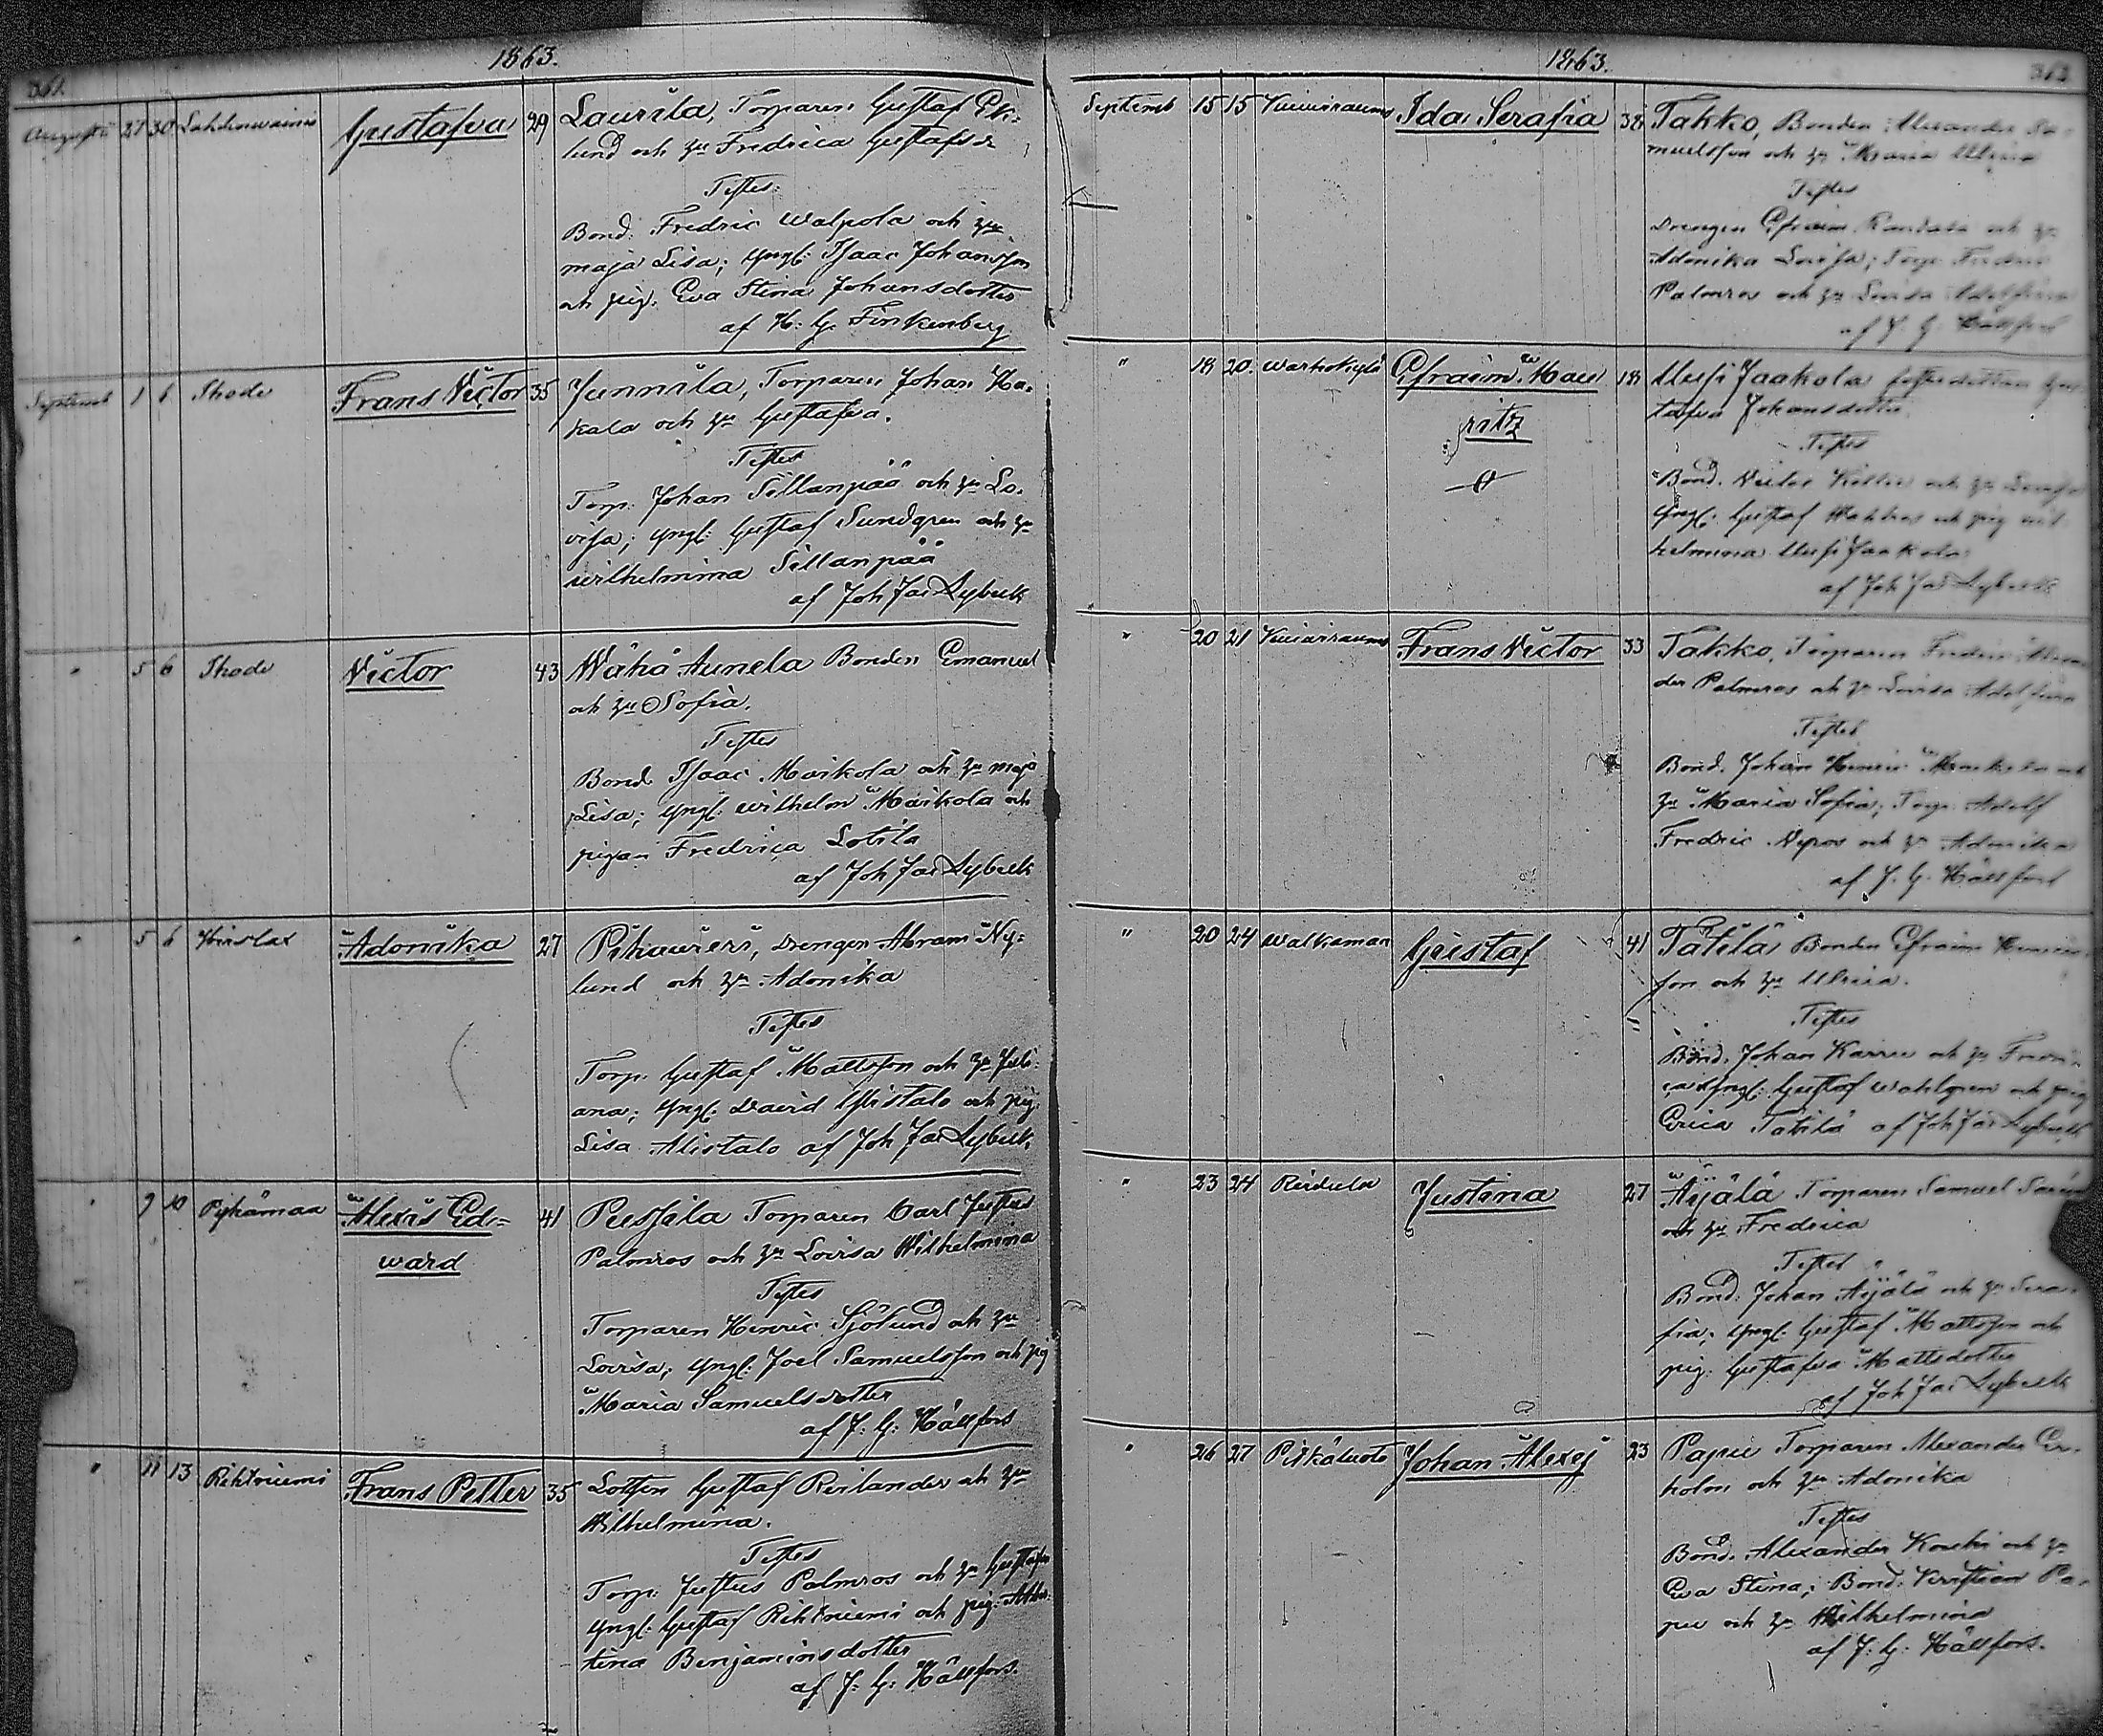 1863.
361.
Augusti 27 30 Lahdenvainio Gustafva 29 Laurila, Torparen Gustaf Ek=
lund och hu Fredrica Gustafsd:
Testes:
Bond: Fredric Walpola och hu
Maja Lisa; yngl: Isaac Johansson
och pig: Eva Stina Johansdotter
af K: G: Finkenberg
Septemb 1 6 Thode Frans Victor 35 Junnila, Torparen Johan Ha=
kala och hu Gustafva.
Testes
Torp. Johan Sillanpää och hu Lo=
visa; yngl: Gustaf Sundgren och hu
Wilhelmina Sillanpää
af Joh Jac Lybeck
" 5 6 Thode Victor 43 Wähä Aunela Bonden Emanuel
och hu Sofia.
Testes
Bond. Isaac Maikola och hu Maja
Lisa; yngl: Wilhelm Maikola och
pigan Fredrica Lotila
af Joh Jac Lybeck
" 5 6 Adonika 27 Pihavieri, Drengen Abram Ny=
lund och hu Adonika
Testes
Torp. Gustaf Mattsson och hu Juli=
ana; yngl: David Alistalo och pig:
Lisa Alistalo af Joh Jac Lybeck
" 9 10 Pyhämaa Alexis Ed=
ward 41 Torparen Carl Justus
Palmros och hu Lovisa Wilhelmina
Testes
Torparen Henric Sjölund och hu
Lovisa; yngl: Joel Samuelsson och pig
Maria Samuelsdotter
af J: G: Hällfors
" 11 13 Rihtniemi Frans Petter 35 Lotsen Gustaf Reilander och hu
Wilhelmina.
Testes
Torp: Justus Palmros och hu Gustafva
yngl: Gustaf Rihtniemi och pig:
tina Benjaminsdotter
af J: G: Hällfors.
1863.
Septemb 15 15 Ida Serafia 38 Takko, Bonden Alexander Sa=
muelsson och hu Maria Ulrica
Testes
Drengen Efraim och hu
Adonika Lovisa; Torp. Fredric
Palmros och hu Lovisa Adolfina
af J. G. Hällfors
" 18 20. Warhokylä Efraim Mau
ritz 18 Uusi Jaakola dottren Gus
tafva Johansdotter.
Testes
Bond. och hu Lovisa
yngl: Gustaf och pig Wil=
helmina Uusi Jaakola
af Joh Jac Lybeck
" 20 21 Frans Victor 33 Takko, Torparen Fredric Alexan
der Palmros och hu Lovisa Adolfina
Testes
Bond. Johan Henric och
hu Maria Sofia; Torp. Adolf
Fredric Nyros och hu Adonika
af J. G. Hällfors
" 20 24 Walkamaa Gustaf 41 Tätilä Bonden Efraim Henrics
son och hu Ulrica.
Testes
Bond. Johan Karru och hu Fredri=
ca yngl: Gustaf Wahlgren och pig
Erica Tätilä af Joh Jac Lybeck
" 23 24 Reidula Justina 27 Äyälä Torparen Samuel
och hu Fredrica
Testes
Bond. Johan Äyälä och hu Sera
fia; yngl: Gustaf Mattsson och
pig: Gustafva Mattsdotter
af Joh Jac Lybeck
" 26 27 Pitkäluoto Johan Alexej 23 Papu Torparen Alexander Ek=
holm och hu Adonika
Testes
Bond. Alexander Kouhi och hu
Eva Stina; Bond. Kristian Pa=
pu och hu Wilhelmina
af J: G: Hällfors.